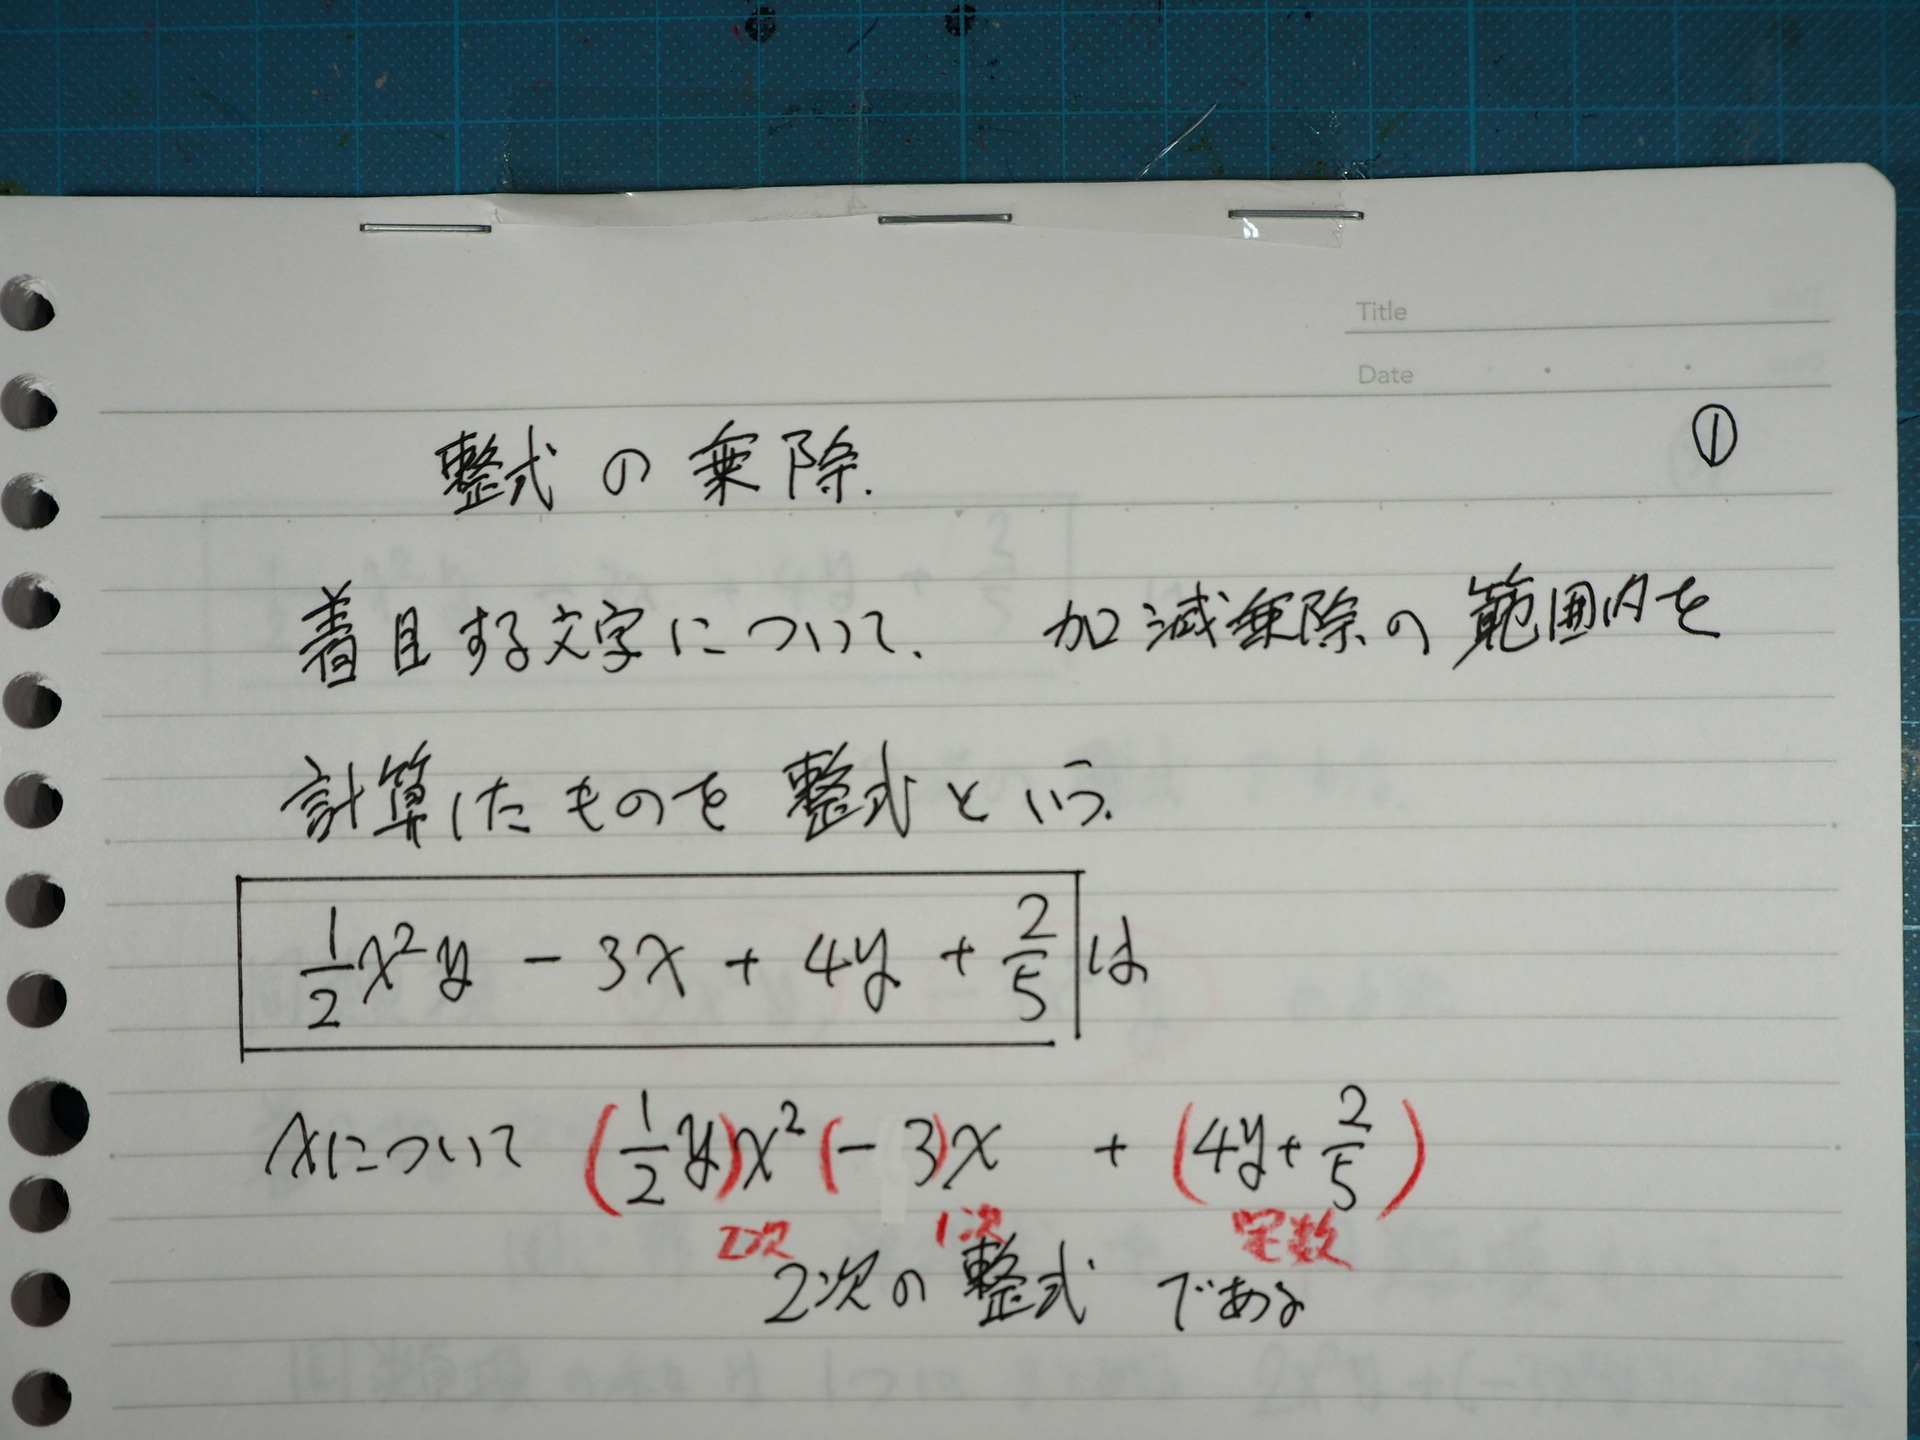 Title
Date
①
整式の乗除.
着目する文字について、加減乗除の範囲内を
計算したものを整式という.
1/2x²y - 3x + 4y + 2/5 は
xについて (1/2y)x² (-3)x + (4y + 2/5)
2次 1次 定数
2次の整式 である